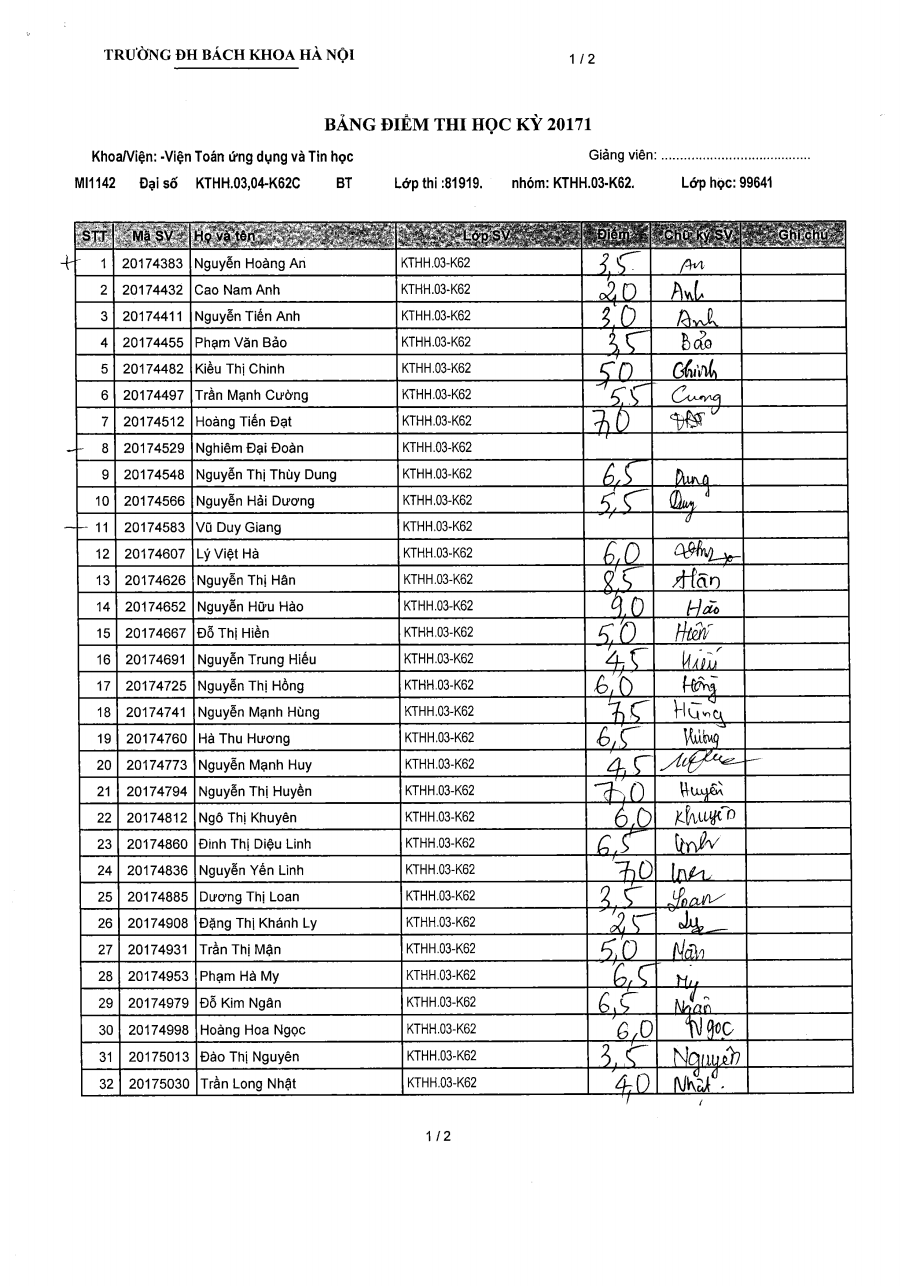 TRƯỜNG ĐH BÁCH KHOA HÀ NỘI
1 / 2
BẢNG ĐIỂM THI HỌC KỲ 20171
Khoa/Viện: -Viện Toán ứng dụng và Tin học Giảng viên: .......................................
MI1142 Đại số KTHH.03,04-K62C BT Lớp thi :81919. nhóm: KTHH.03-K62. Lớp học: 99641
STT Mã SV Họ và tên Lớp SV Điểm Chữ ký SV Ghi chú
1 20174383 Nguyễn Hoàng An KTHH.03-K62 3,5 An
2 20174432 Cao Nam Anh KTHH.03-K62 2,0 Anh
3 20174411 Nguyễn Tiến Anh KTHH.03-K62 3,0 Anh
4 20174455 Phạm Văn Bảo KTHH.03-K62 3,5 Bảo
5 20174482 Kiều Thị Chinh KTHH.03-K62 5,0 Chinh
6 20174497 Trần Mạnh Cường KTHH.03-K62 5,5 Cuong
7 20174512 Hoàng Tiến Đạt KTHH.03-K62 7,0
8 20174529 Nghiêm Đại Đoàn KTHH.03-K62
9 20174548 Nguyễn Thị Thùy Dung KTHH.03-K62 6,5 Dung
10 20174566 Nguyễn Hải Dương KTHH.03-K62 5,5
11 20174583 Vũ Duy Giang KTHH.03-K62
12 20174607 Lý Việt Hà KTHH.03-K62 6,0
13 20174626 Nguyễn Thị Hân KTHH.03-K62 8,5 Hân
14 20174652 Nguyễn Hữu Hào KTHH.03-K62 9,0 Hào
15 20174667 Đỗ Thị Hiền KTHH.03-K62 5,0 Hiền
16 20174691 Nguyễn Trung Hiếu KTHH.03-K62 4,5 Hiếu
17 20174725 Nguyễn Thị Hồng KTHH.03-K62 6,0 Hồng
18 20174741 Nguyễn Mạnh Hùng KTHH.03-K62 7,5 Hùng
19 20174760 Hà Thu Hương KTHH.03-K62 6,5 Hương
20 20174773 Nguyễn Mạnh Huy KTHH.03-K62 4,5
21 20174794 Nguyễn Thị Huyền KTHH.03-K62 7,0 Huyền
22 20174812 Ngô Thị Khuyên KTHH.03-K62 6,0 Khuyên
23 20174860 Đinh Thị Diệu Linh KTHH.03-K62 6,5 Linh
24 20174836 Nguyễn Yến Linh KTHH.03-K62 7,0
25 20174885 Dương Thị Loan KTHH.03-K62 3,5 Loan
26 20174908 Đặng Thị Khánh Ly KTHH.03-K62 2,5 Ly
27 20174931 Trần Thị Mận KTHH.03-K62 5,0 Mận
28 20174953 Phạm Hà My KTHH.03-K62 6,5 My
29 20174979 Đỗ Kim Ngân KTHH.03-K62 6,5 Ngân
30 20174998 Hoàng Hoa Ngọc KTHH.03-K62 6,0 Ngọc
31 20175013 Đào Thị Nguyên KTHH.03-K62 3,5 Nguyên
32 20175030 Trần Long Nhật KTHH.03-K62 4,0 Nhật
1 / 2